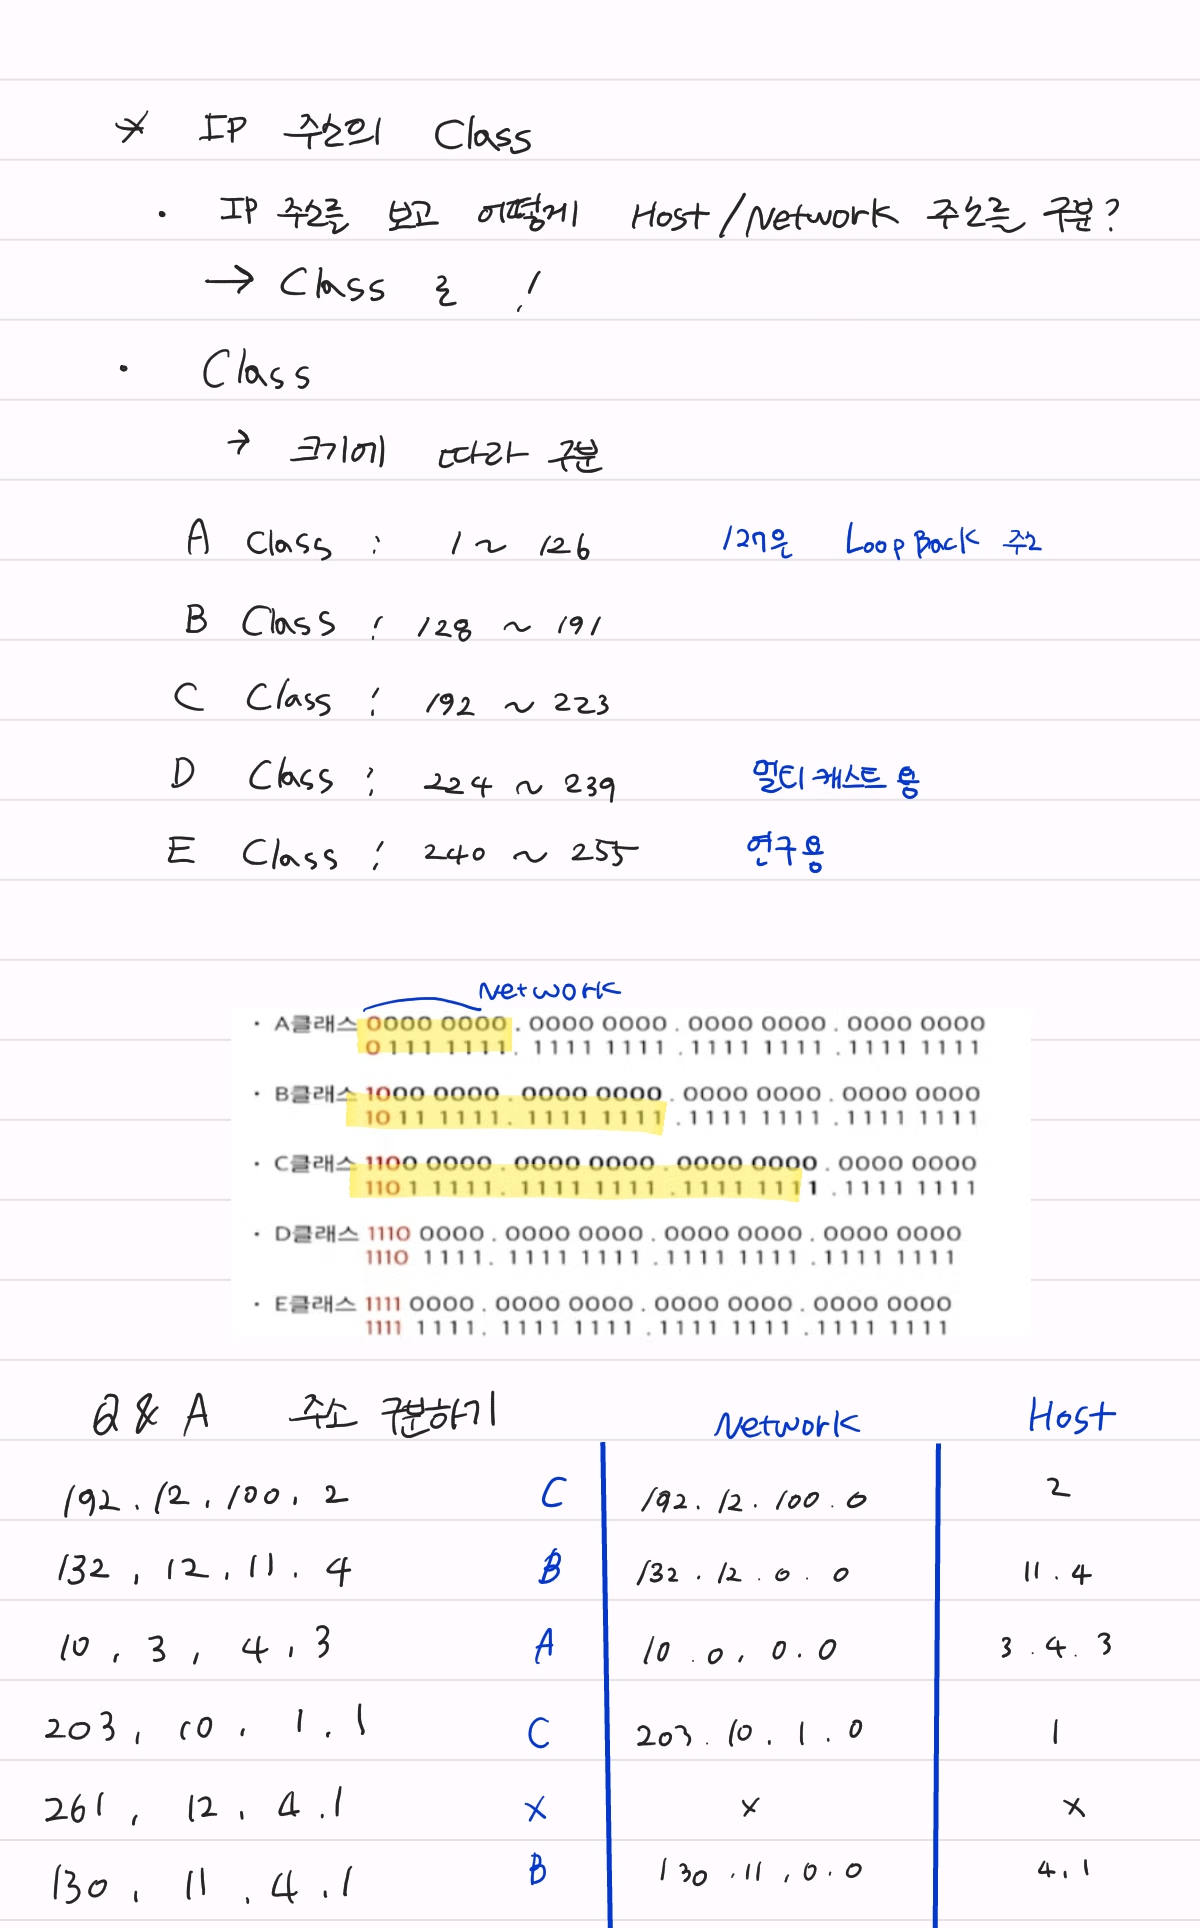 * IP 주소의 Class
· IP 주소를 보고 어떻게 Host/Network 주소를 구분?
→ Class 로 !
· Class
→ 크기에 따라 구분
A Class : 1 ~ 126 127은 LoopBack 주소
B Class : 128 ~ 191
C Class : 192 ~ 223
D Class : 224 ~ 239 멀티캐스트용
E Class : 240 ~ 255 연구용
Network
· A클래스 0000 0000 . 0000 0000 . 0000 0000 . 0000 0000
0 111 1111 . 1111 1111 . 1111 1111 . 1111 1111
· B클래스 1000 0000 . 0000 0000 . 0000 0000 . 0000 0000
10 11 1111 . 1111 1111 . 1111 1111 . 1111 1111
· C클래스 1100 0000 . 0000 0000 . 0000 0000 . 0000 0000
110 1 1111 . 1111 1111 . 1111 1111 . 1111 1111
· D클래스 1110 0000 . 0000 0000 . 0000 0000 . 0000 0000
1110 1111 . 1111 1111 . 1111 1111 . 1111 1111
· E클래스 1111 0000 . 0000 0000 . 0000 0000 . 0000 0000
1111 1111 . 1111 1111 . 1111 1111 . 1111 1111
Q & A 주소 구분하기 Network Host
192.12.100.2 C 192.12.100.0 2
132.12.11.4 B 132.12.0.0 11.4
10.3.4.3 A 10.0.0.0 3.4.3
203.10.1.1 C 203.10.1.0 1
261.12.4.1 x x x
130.11.4.1 B 130.11.0.0 4.1